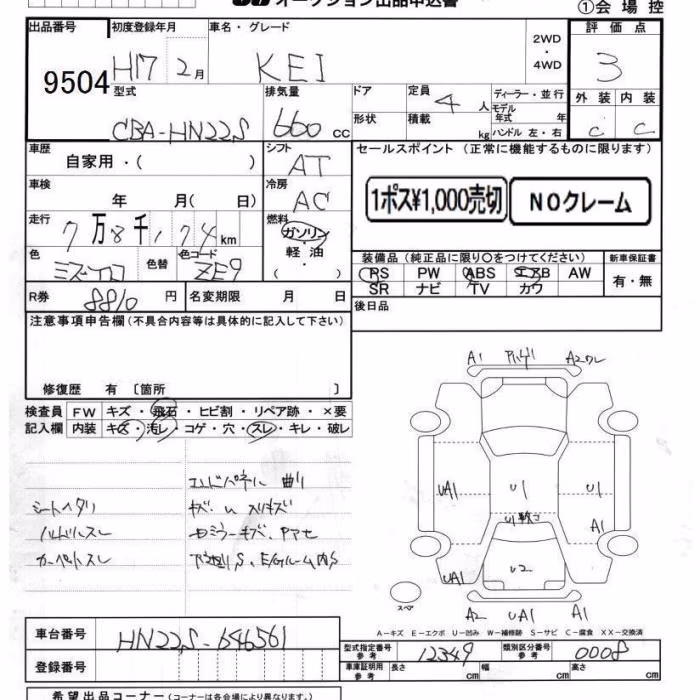 オークション出品申込書
①会場控
出品番号 初度登録年月 車名・グレード 2WD・4WD 評価点
9504 H17 2月 KEI 3
型式 排気量 ドア 定員 ディーラー・並行 外装 内装
CBA-HN22S 660 cc 4人 モデル年式 年 C C
形状 積載 kg ハンドル 左・右
車歴 シフト セールスポイント (正常に機能するものに限ります)
自家用・( ) AT
車検 冷房 1ポス¥1,000売切 NOクレーム
年 月( 日) AC
走行 燃料
7万8千174km ガソリン・軽油・( )
色 色替 色コード 装備品(純正品に限り〇をつけてください) 新車保証書
ミズイロ ZE9 PS PW ABS エアB AW 有・無
SR ナビ TV カワ
R券 8810円 名変期限 月 日 後日品
注意事項申告欄(不具合内容等は具体的に記入して下さい)
修復歴 有〔箇所 〕
検査員 FW キズ・飛石・ヒビ割・リペア跡・×要
記入欄 内装 キズ・汚レ・コゲ・穴・スレ・キレ・破レ
エンドパネル曲り
シートヘタリ キズ
ハンドルスレ ドアミラーキズ、
カーペットスレ 下廻りS、E/GルームS
A1 A2ワレ
UA1 U1 U1
U1 A1
UA1 U2
スペア A2 UA1 A1
A-キズ E-エクボ U-凹み W-補修跡 S-サビ C-腐食 XX-交換済
車台番号 HN22S-646561
型式指定番号 参考 12349 類別区分番号 参考 0008
登録番号
車庫証明用 参考 長さ cm 幅 cm 高さ cm
希望出品コーナー(コーナーは各会場により異なります。)